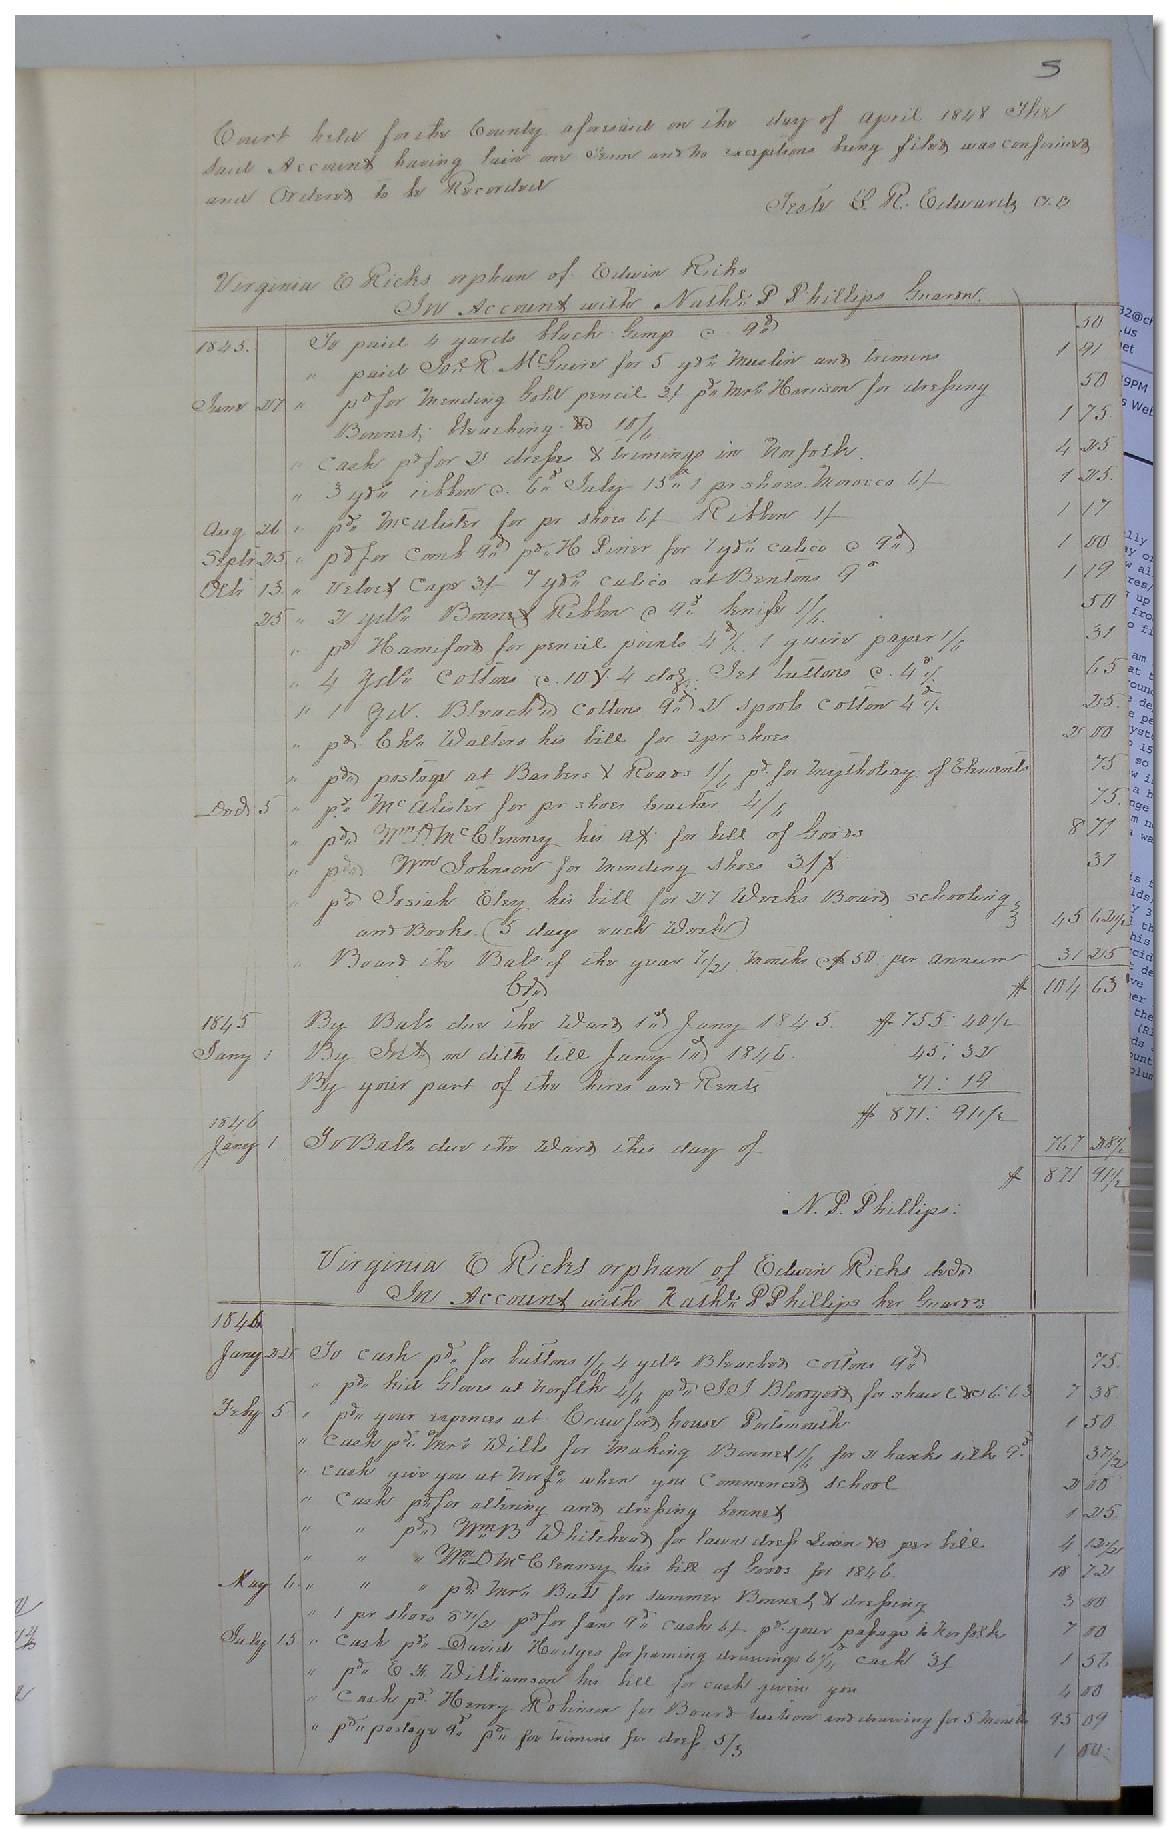 5
Court held for the County aforesaid on the day of April 1848 The
said Account having lain one Term and no exceptions being filed was confirmed
and Ordered to be Recorded
Teste L. R. Edwards C.C
Virginia E Ricks orphan of Edwin Ricks
In Account with Nathl P Phillips Guardn.
1845. To paid 4 yards black Gimp @ 9d 50
" paid Jos R. McGuire for 5 yds Muslin and trimins 1 91
June 27 " pd for Mending Gold pencil 3/ pd Mrs Harrison for dressing 50
Bonnet, bleaching &c 10/6 1 75
" Cash pd for 2 dresses & trimings in Norfolk. 4 25
" 3 yds ribbon @. 6d July 15th 1 pr shoes Morocco 6/ 1 25.
Aug 26 " pd McAlister for pr shoes 6/ Ribbon 1/ 1 17
Septr 25 " pd for Comb 9d pd H Piner for 7 yds calico @ 9d 1 00
Octr 13. " Velvet Cape 3/ 7 yds calico at Bentons 9d 1 19
25 " 2 yds Bonnet Ribbon @ 9d Knife 1/6 50
" pd Hanniford for pencil points 4½d, 1 quire paper 1/6 31
" 4 yds Cottons @ .10 & 4 doz Jet buttons @ 4½d 65
" 1 yd. Bleachd cottons 9d 2 spools cotton 4½d 25.
" pd Chs Walters his bill for 2 pr shoes 2 00
" pd postage at Barbers & Roads 1/6 pd for Mythology of Edwards 75
Decr 5 " pd McAlister for pr shoes 4/6 75.
" pd Wm D. McClenney his a/c for bill of Goods 8 71
" pd Wm Johnson for mending shoes 3/ 31
" pd Josiah Eley his bill for 27 Weeks Board schooling
and Books. (5 days each Week) 45 62½
" Board the Bals of the year 7½ Months @ $50 per annum 31 25
Crd $ 104 63
1845 By Bals due the Ward 1st Jany 1845. $ 755: 40½
Jany 1 By Int on ditto till Jany 1st 1846. 45: 32
By your part of the hires and Rents 71: 19
$ 871: 91½
1846
Jany 1 To Bals due the Ward this day of 767 28½
$ 871 91½
N. P. Phillips:
Virginia E Ricks orphan of Edwin Ricks decd
In Account with Nathl P Phillips her Guardn
1846
Jany 22 To cash pd for buttons 1/6 4 yds Bleached cottons 9d 75.
" pd kid Gloves at Norfolk 4/6 pd for shawl &c 6.63 7 38
Feby 5 " pd your expences at Crawford house Portsmouth 1 50
" Cash pd Mrs Wills for Making Bonnet 1/6 for 2 hanks silk 9d 37½
" Cash give you at Norfo when you Commenced school 2 00
" Cash pd for altering and dressing bonnet 1 25.
" " pd Wm B Whitehead for lawn dress Linin &c per bill 4 12½
" " " Wm D McClenney his bill of Goods for 1846. 18 72
May 6 " " " pd Mrs Butt for summer Bonnet & dressing 3 00
" 1 pr shoes pd for fan 9d cash 6/ pd your passage to Norfolk 7 00
July 15 " Cash pd David Hodges for framing drawings cash 3/ 1 56
" pd E H Williamson his bill for cash given you 4 00
" Cash pd Henry Robinson for Board tuition and drawing for 5 Months 95 09
" pd postage 9d pd for trimins for dress 5/3 1 00